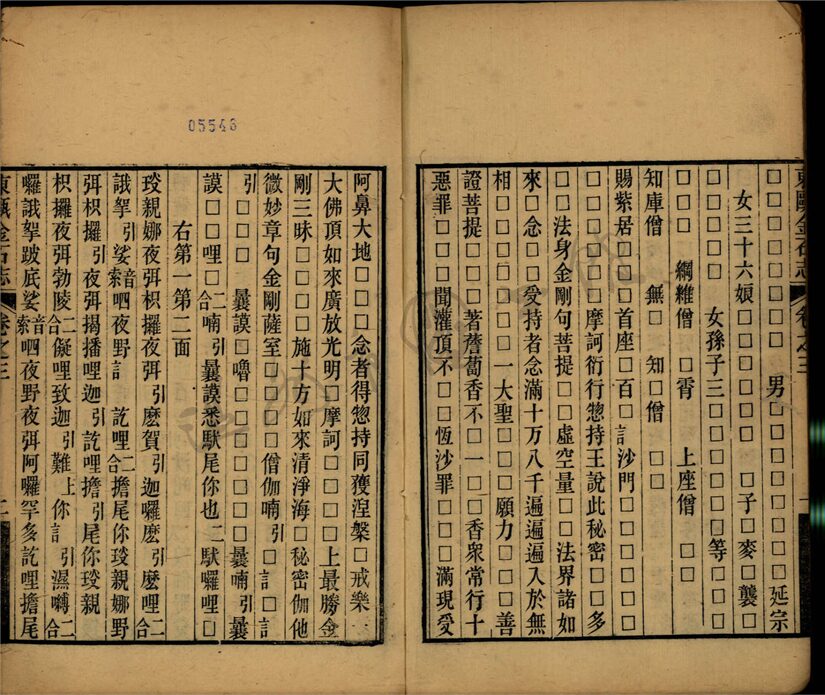 □□□□□□□□□男□□□□□□□延宗
女三十六娘□□□□□□□子□麥□龔□
女孫子三□□□□□□等□□□
□□□　綱維僧　□霄　上座僧　□□
知庫僧　無□　知□僧　□□
賜紫居□□□□首座□百□訁沙門□□□□□
□□□□□□摩訶衍行惣持王說此秘密□□□多
□□法身金剛句菩提□□虛空量□□法界諸如
來□念□□受持者念滿十万八千遍遍遍入於無
相□□□□□□□一大聖□□□□願力□□□□善
證菩提□□□著薝蔔香不□一□□香衆常行十
惡罪□□□聞灌頂不□□恆沙罪□□□□滿現愛
東甌金石志
卷之三
一
05546
阿鼻大地□□□□念者得惣持同獲涅槃□戒樂一
大佛頂如來廣放光明□摩訶□□□□□上最勝金
剛三昧□□□□施十方如來清淨海□秘密伽他
微妙章句金剛薩室□□□□□僧伽喃引□訁□訁
引□□□□曩謨□嚕□□□□□□□曩喃引曩
謨□□□哩□二合喃引曩謨悉馱尾你也二馱囉哩□
右第一第二面
珓親娜夜弭枳攞夜弭引麽賀引迦囉麽引麽哩二
誐拏引娑音索呬夜野訁訖哩二合擔尾你珓親娜野
弭枳攞引夜弭揭播哩迦引訖哩擔引尾你珓親
枳攞夜弭勃陵二合儗哩致迦引難上你訁引濕嚩二合
囉誐拏跛底娑音索呬夜野夜弭阿囉罕多訖哩擔尾
東甌金石志
卷之三
二